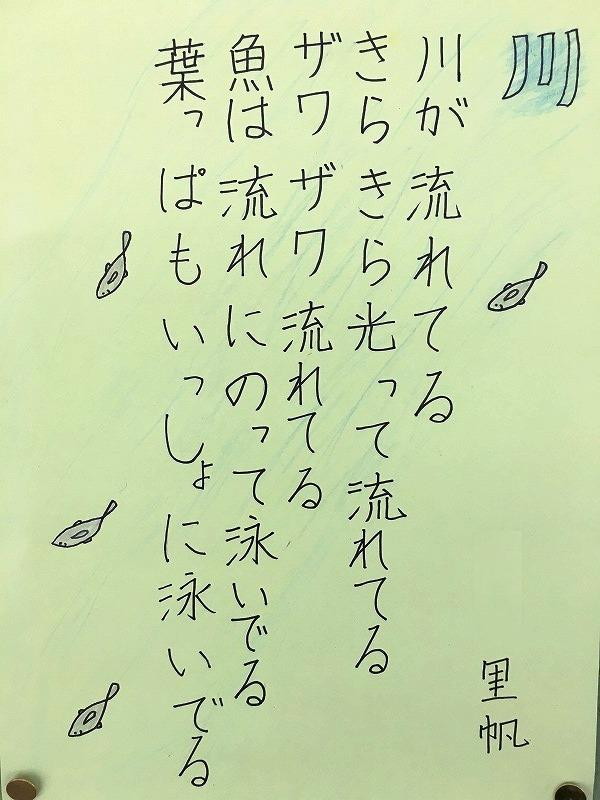 川
里帆
川が 流れてる
きらきら光って流れてる
ザワ ザワ 流れてる
魚は 流れにのって泳いでる
葉っぱもいっしょに泳いでる